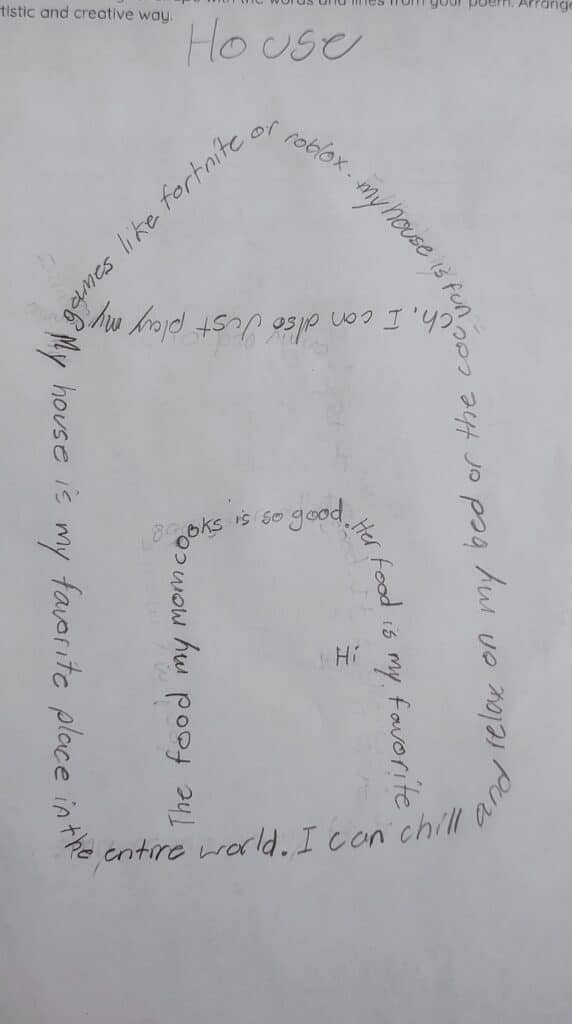 tistic and creative way.
House
My house is my favorite place in
the entire world. I can chill
and relax on my bed or the cou
ch. I can also Just play my
Games like fortnite or
roblox. my house is fun
The food my mom co
oks is so good.
Her food is my favorite
Hi